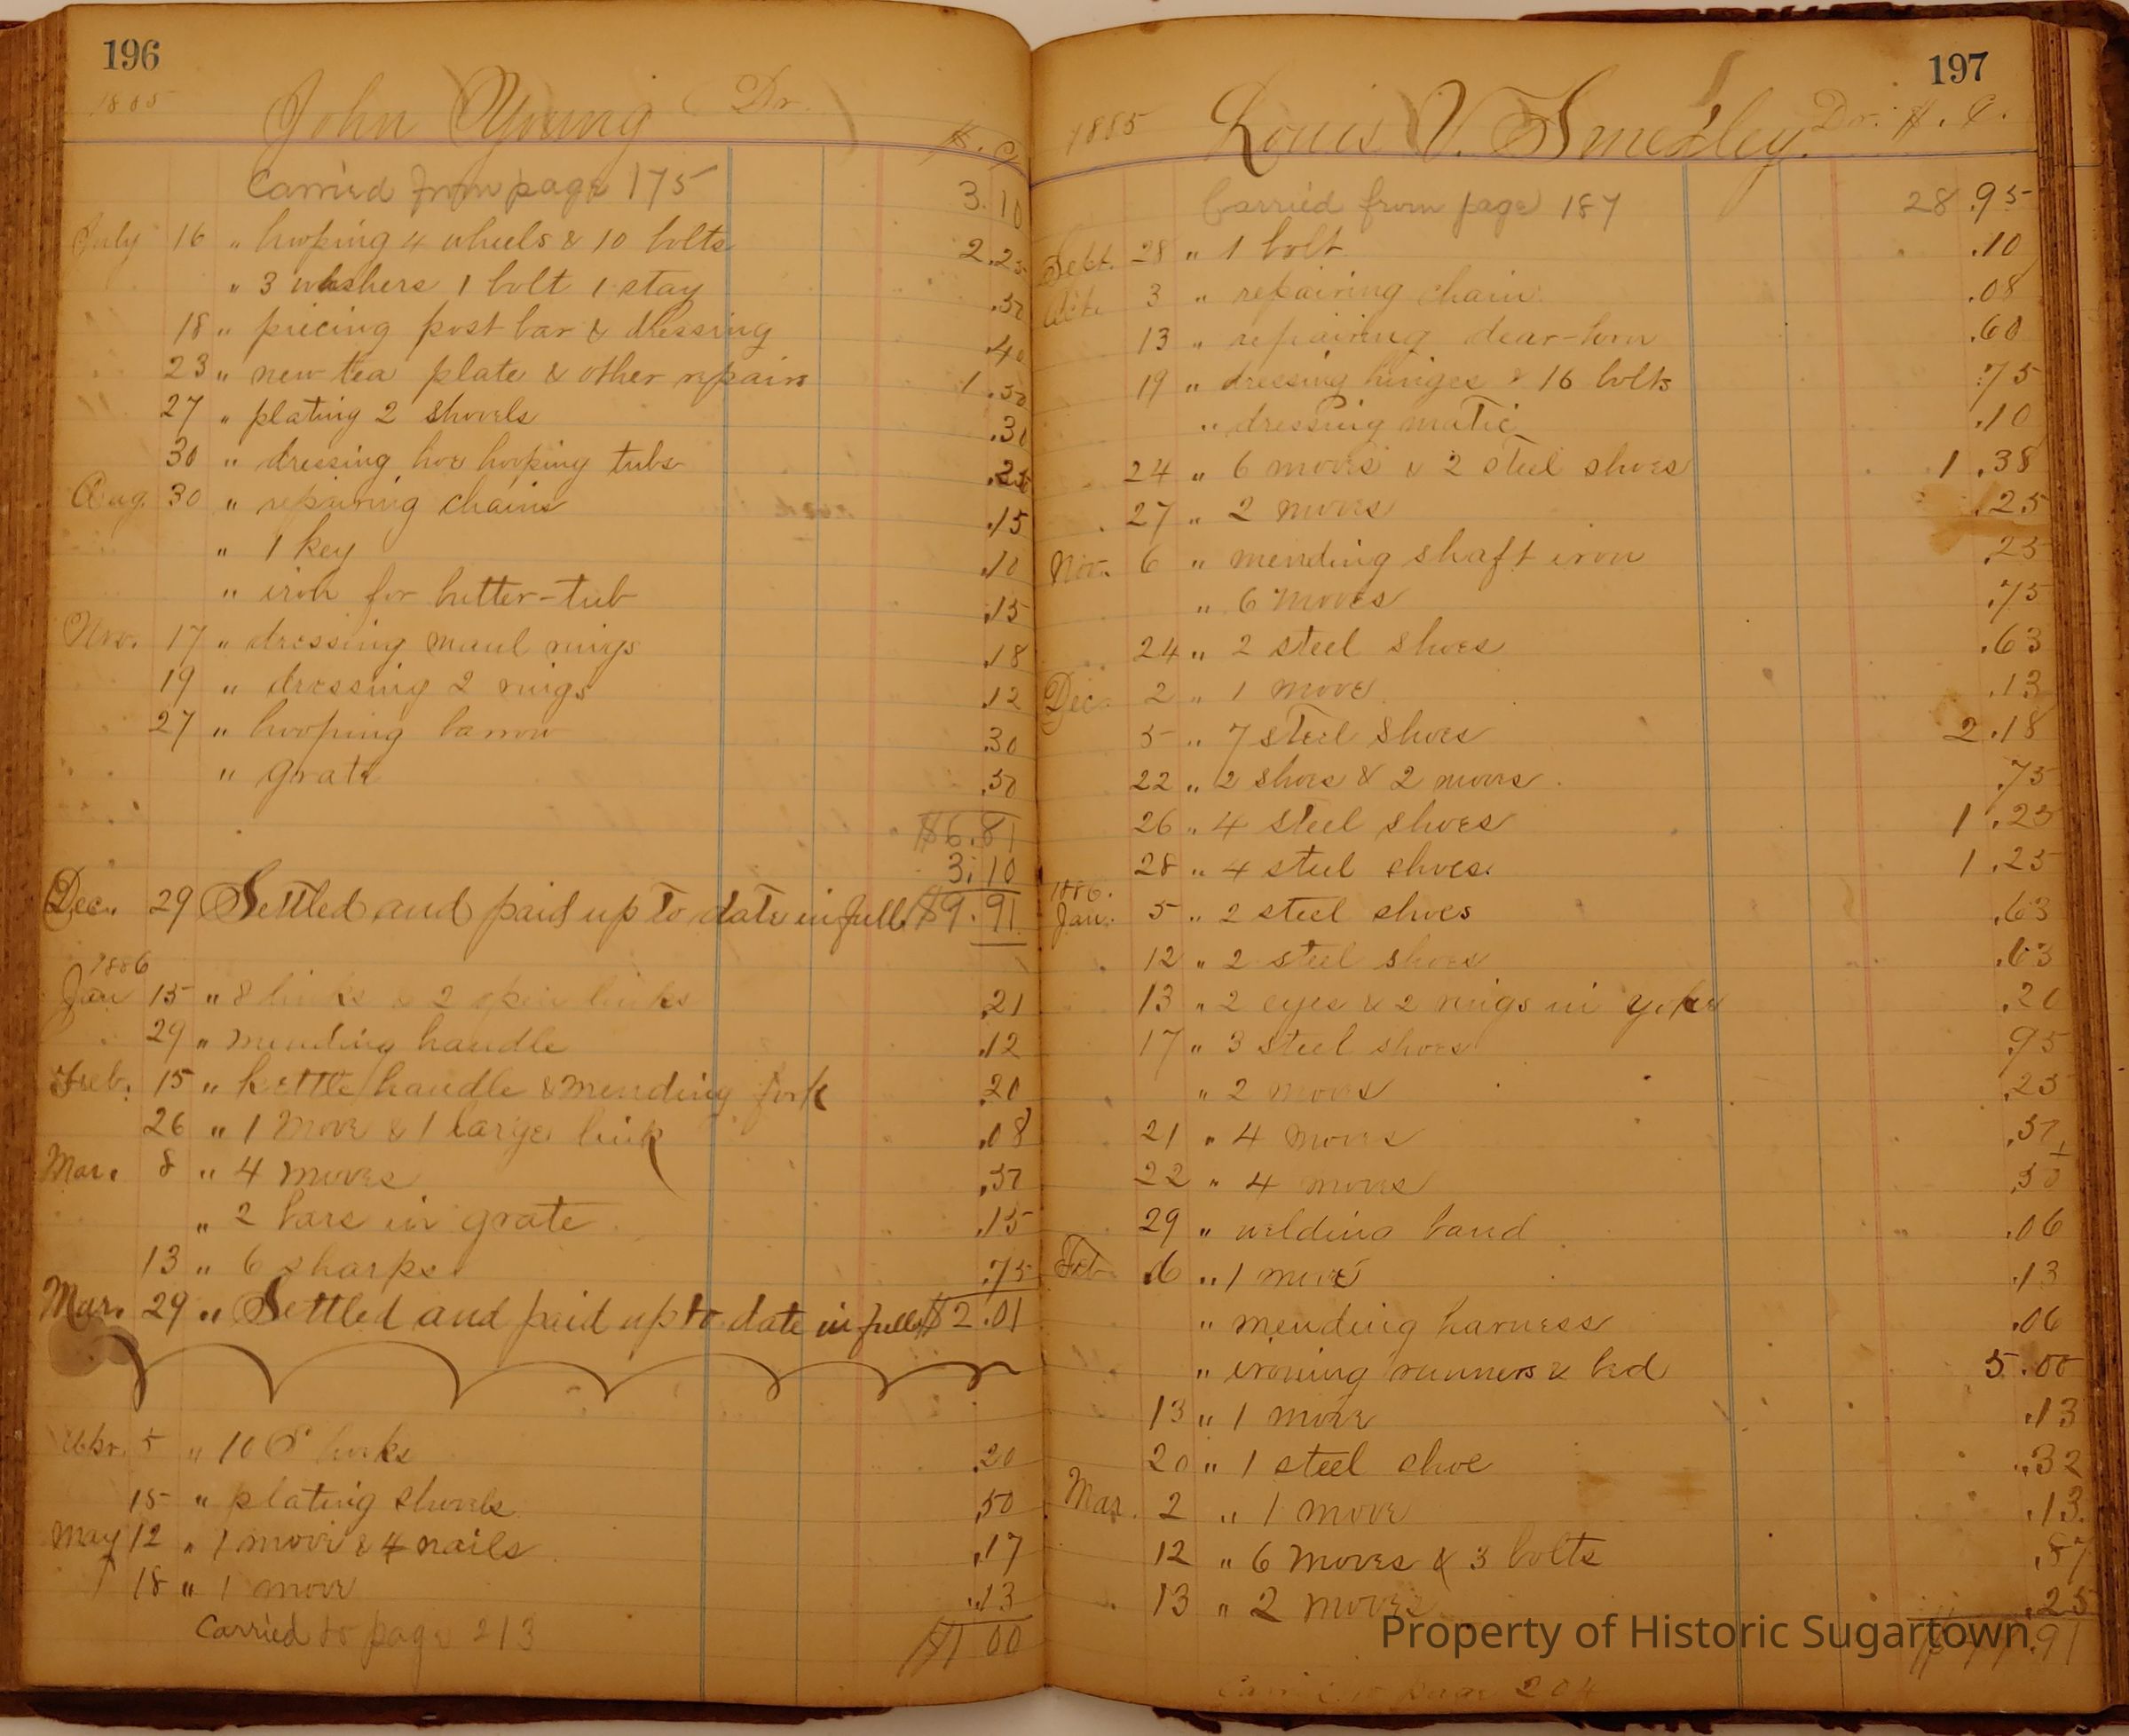 196
1885 John Young Dr.
$. C.
Carried from page 175 3.10
July 16 " hooping 4 wheels & 10 bolts 2.25
" 3 washers 1 bolt 1 stay .50
18 " piecing post bar & dressing .40
23 " new tea plate & other repairs 1.50
27 " plating 2 shovels .30
30 " dressing hoe hooping tubs .25
Aug. 30 " repairing chains .15
" 1 key .10
" iron for butter-tub .15
Nov. 17 " dressing maul rings .18
19 " dressing 2 rings .12
27 " hooping barrow .30
" grate .50
$6.81
3.10
Dec. 29 Settled and paid up to date in full $9.91
1886
Jan 15 " 8 links & 2 open links .21
29 " mending handle .12
Feb. 15 " kettle handle & mending fork .20
26 " 1 move & 1 large link .08
Mar. 8 " 4 moves .50
" 2 bars in grate .15
13 " 6 sharps .75
Mar. 29 " Settled and paid up to date in full $2.01
Apr. 5 " 10 hooks .20
15 " plating shovels .50
May 12 " 1 move & 4 nails .17
18 " 1 move .13
Carried to page 213 $1 00
197
1885 Louis V. Smedley. Dr. $. C.
Carried from page 187 28.95
Sept. 28 " 1 bolt .10
Oct. 3 " repairing chain .08
13 " repairing dear-born .60
19 " dressing hinges & 16 bolts .75
" dressing matic .10
24 " 6 moves & 2 steel shoes 1.38
27 " 2 moves .25
Nov. 6 " mending shaft iron .25
" 6 moves .75
24 " 2 steel shoes .63
Dec. 2 " 1 move .13
5 " 7 steel shoes 2.18
22 " 2 shoes & 2 moves .75
26 " 4 steel shoes 1.25
28 " 4 steel shoes. 1.25
1886.
Jan. 5 " 2 steel shoes .63
12 " 2 steel shoes .63
13 " 2 eyes & 2 rings in yoke .20
17 " 3 steel shoes .95
" 2 moves .25
21 " 4 moves .50
22 " 4 moves .50
29 " welding band .06
Feb. 6 " 1 move .13
" mending harness .06
" ironing runners & bed 5.00
13 " 1 move .13
20 " 1 steel shoe .32
Mar. 2 " 1 move .13
12 " 6 moves & 3 bolts .87
13 " 2 moves .25
Property of Historic Sugartown
.91
page 204